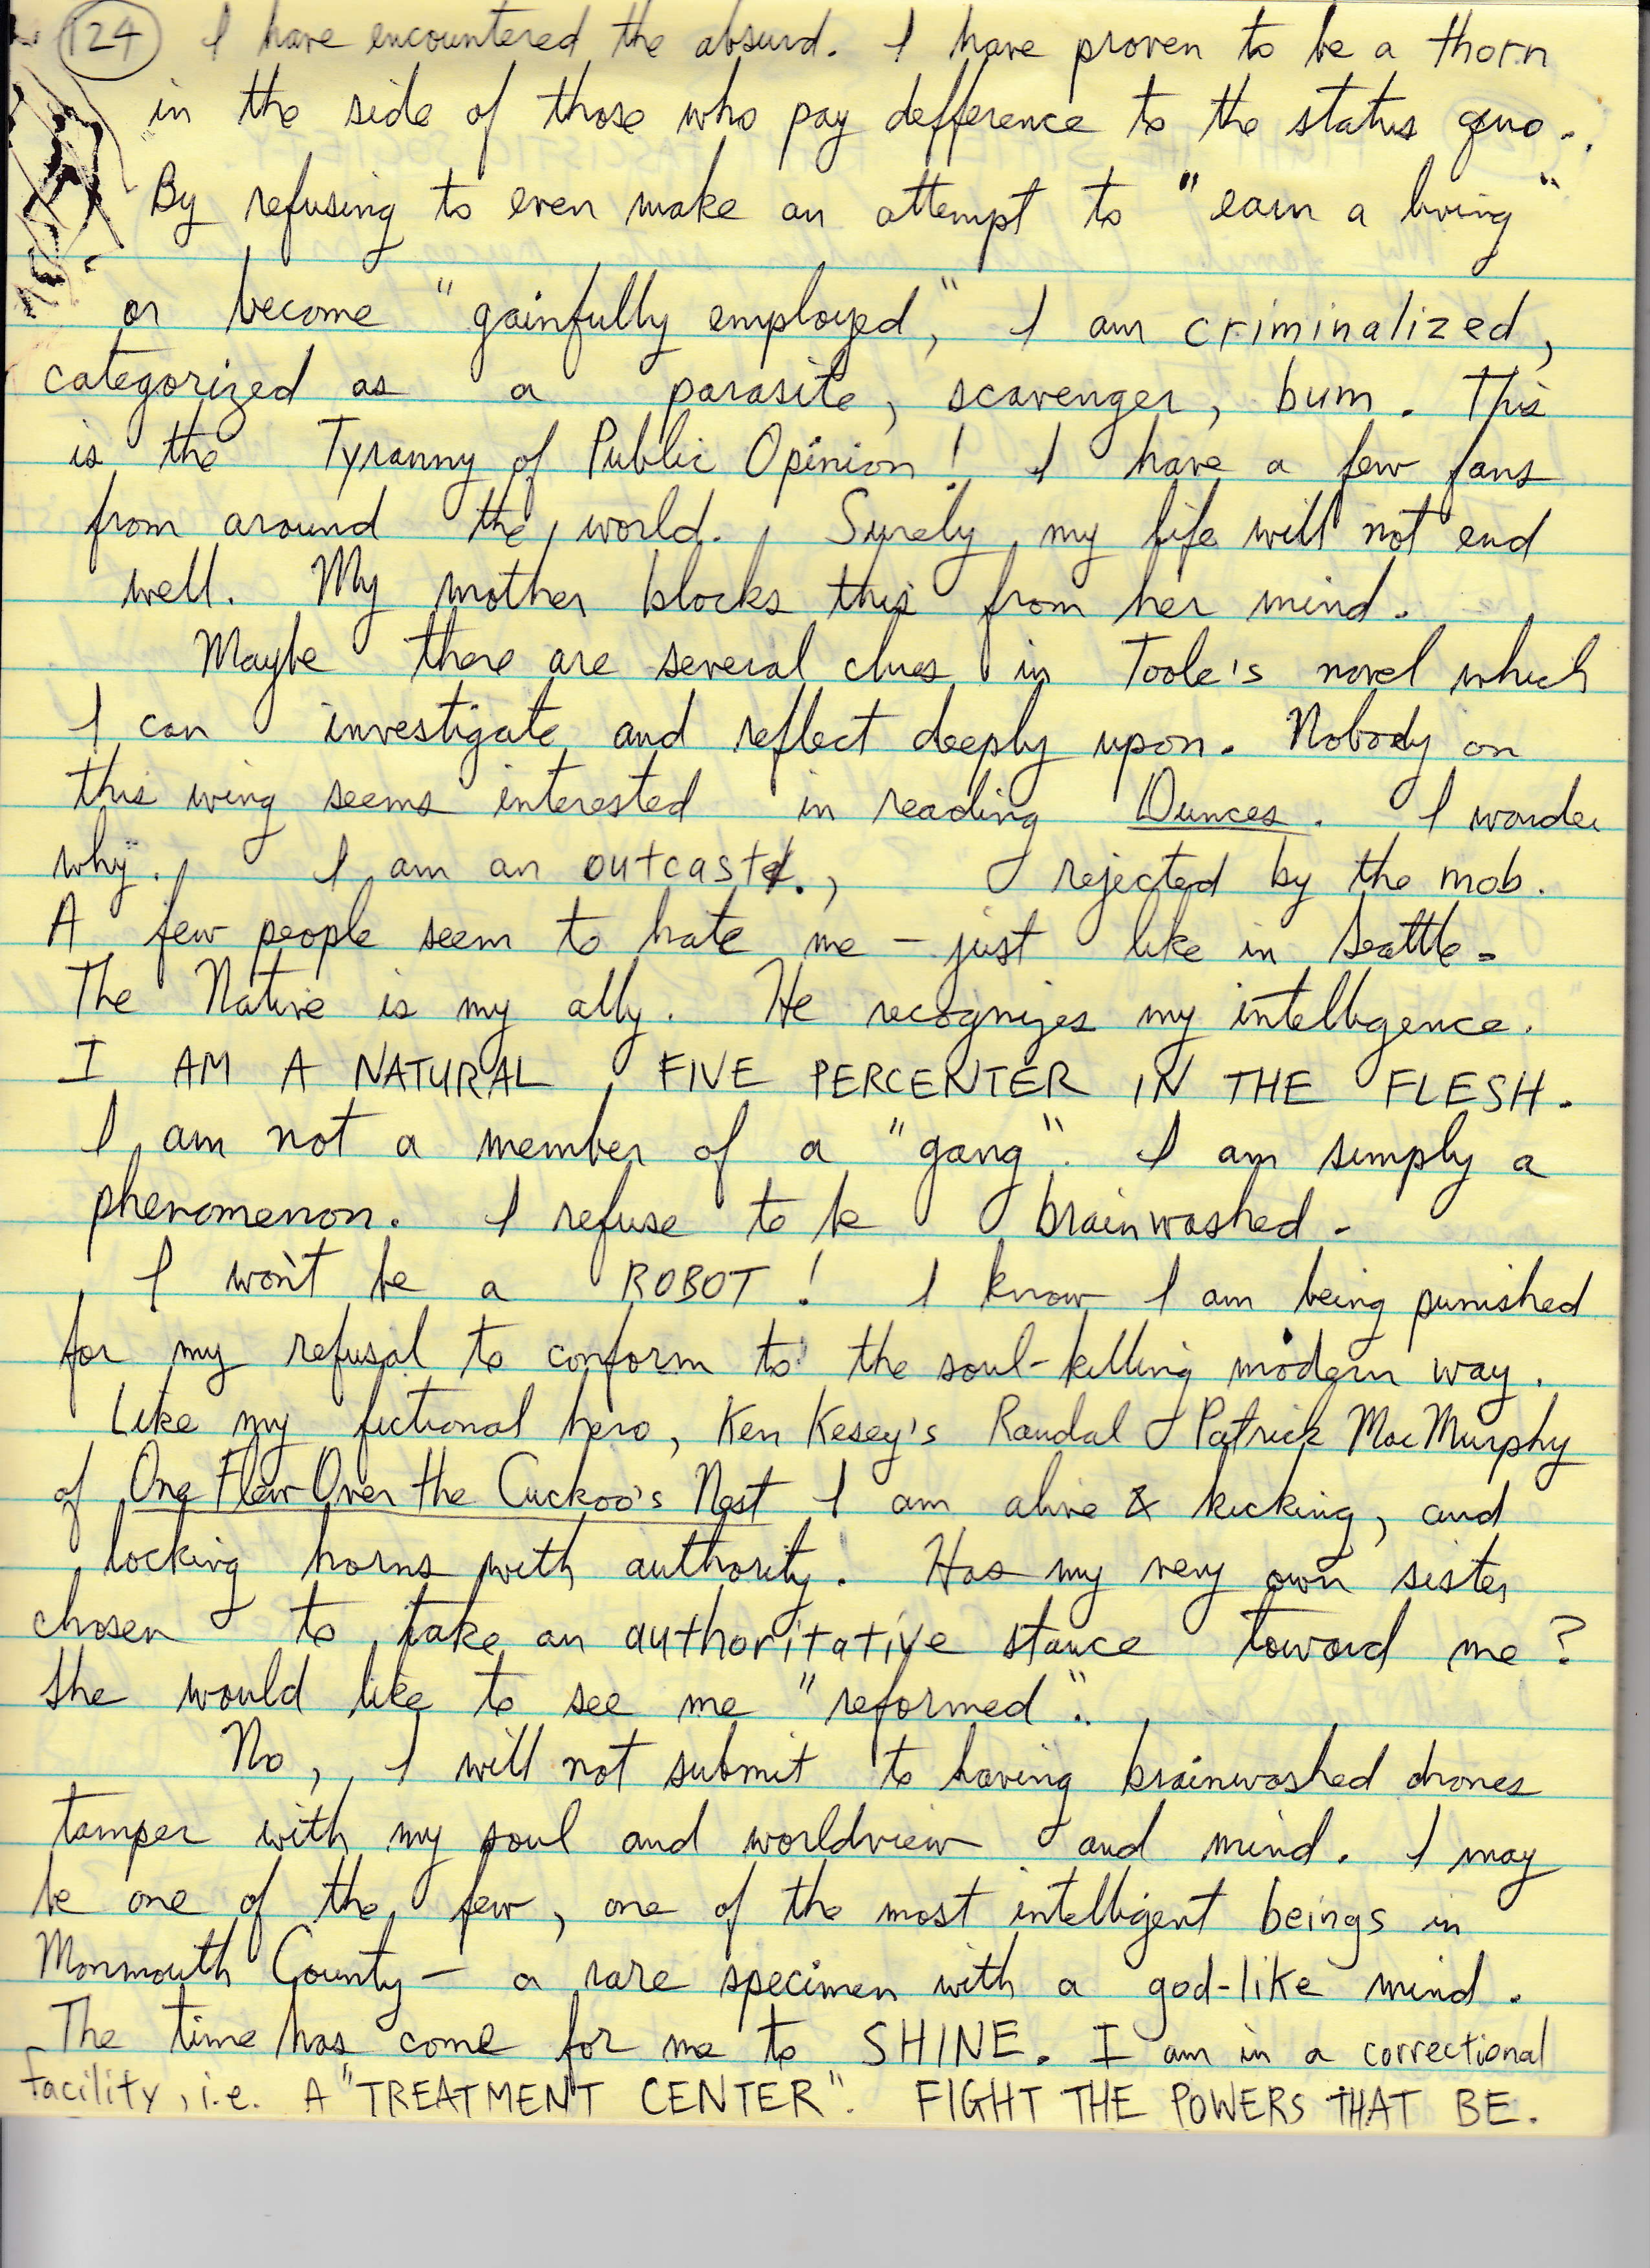 124 I have encountered the absurd. I have proven to be a thorn
in the side of those who pay defference to the status quo.
By refusing to even make an attempt to "earn a living"
or become "gainfully employed," I am criminalized,
categorized as a parasite, scavenger, bum. This
is the Tyranny of Public Opinion! I have a few fans
from around the world. Surely my life will not end
well. My mother blocks this from her mind.
Maybe there are several clues in Toole's novel which
I can investigate and reflect deeply upon. Nobody on
this wing seems interested in reading Dunces. I wonder
why. I am an outcast, rejected by the mob.
A few people seem to hate me - just like in Seattle.
The Native is my ally. He recognizes my intelligence.
I AM A NATURAL FIVE PERCENTER IN THE FLESH.
I am not a member of a "gang". I am simply a
phenomenon. I refuse to be brainwashed.
I won't be a ROBOT! I know I am being punished
for my refusal to conform to the soul-killing modern way.
Like my fictional hero, Ken Kesey's Randal Patrick MacMurphy
of One Flew Over the Cuckoo's Nest I am alive & kicking, and
locking horns with authority. Has my very own sister
chosen to take an authoritative stance toward me?
She would like to see me "reformed".
No, I will not submit to having brainwashed drones
tamper with my soul and worldview and mind. I may
be one of the few, one of the most intelligent beings in
Monmouth County - a rare specimen with a god-like mind.
The time has come for me to SHINE. I am in a correctional
facility, i.e. A "TREATMENT CENTER". FIGHT THE POWERS THAT BE.